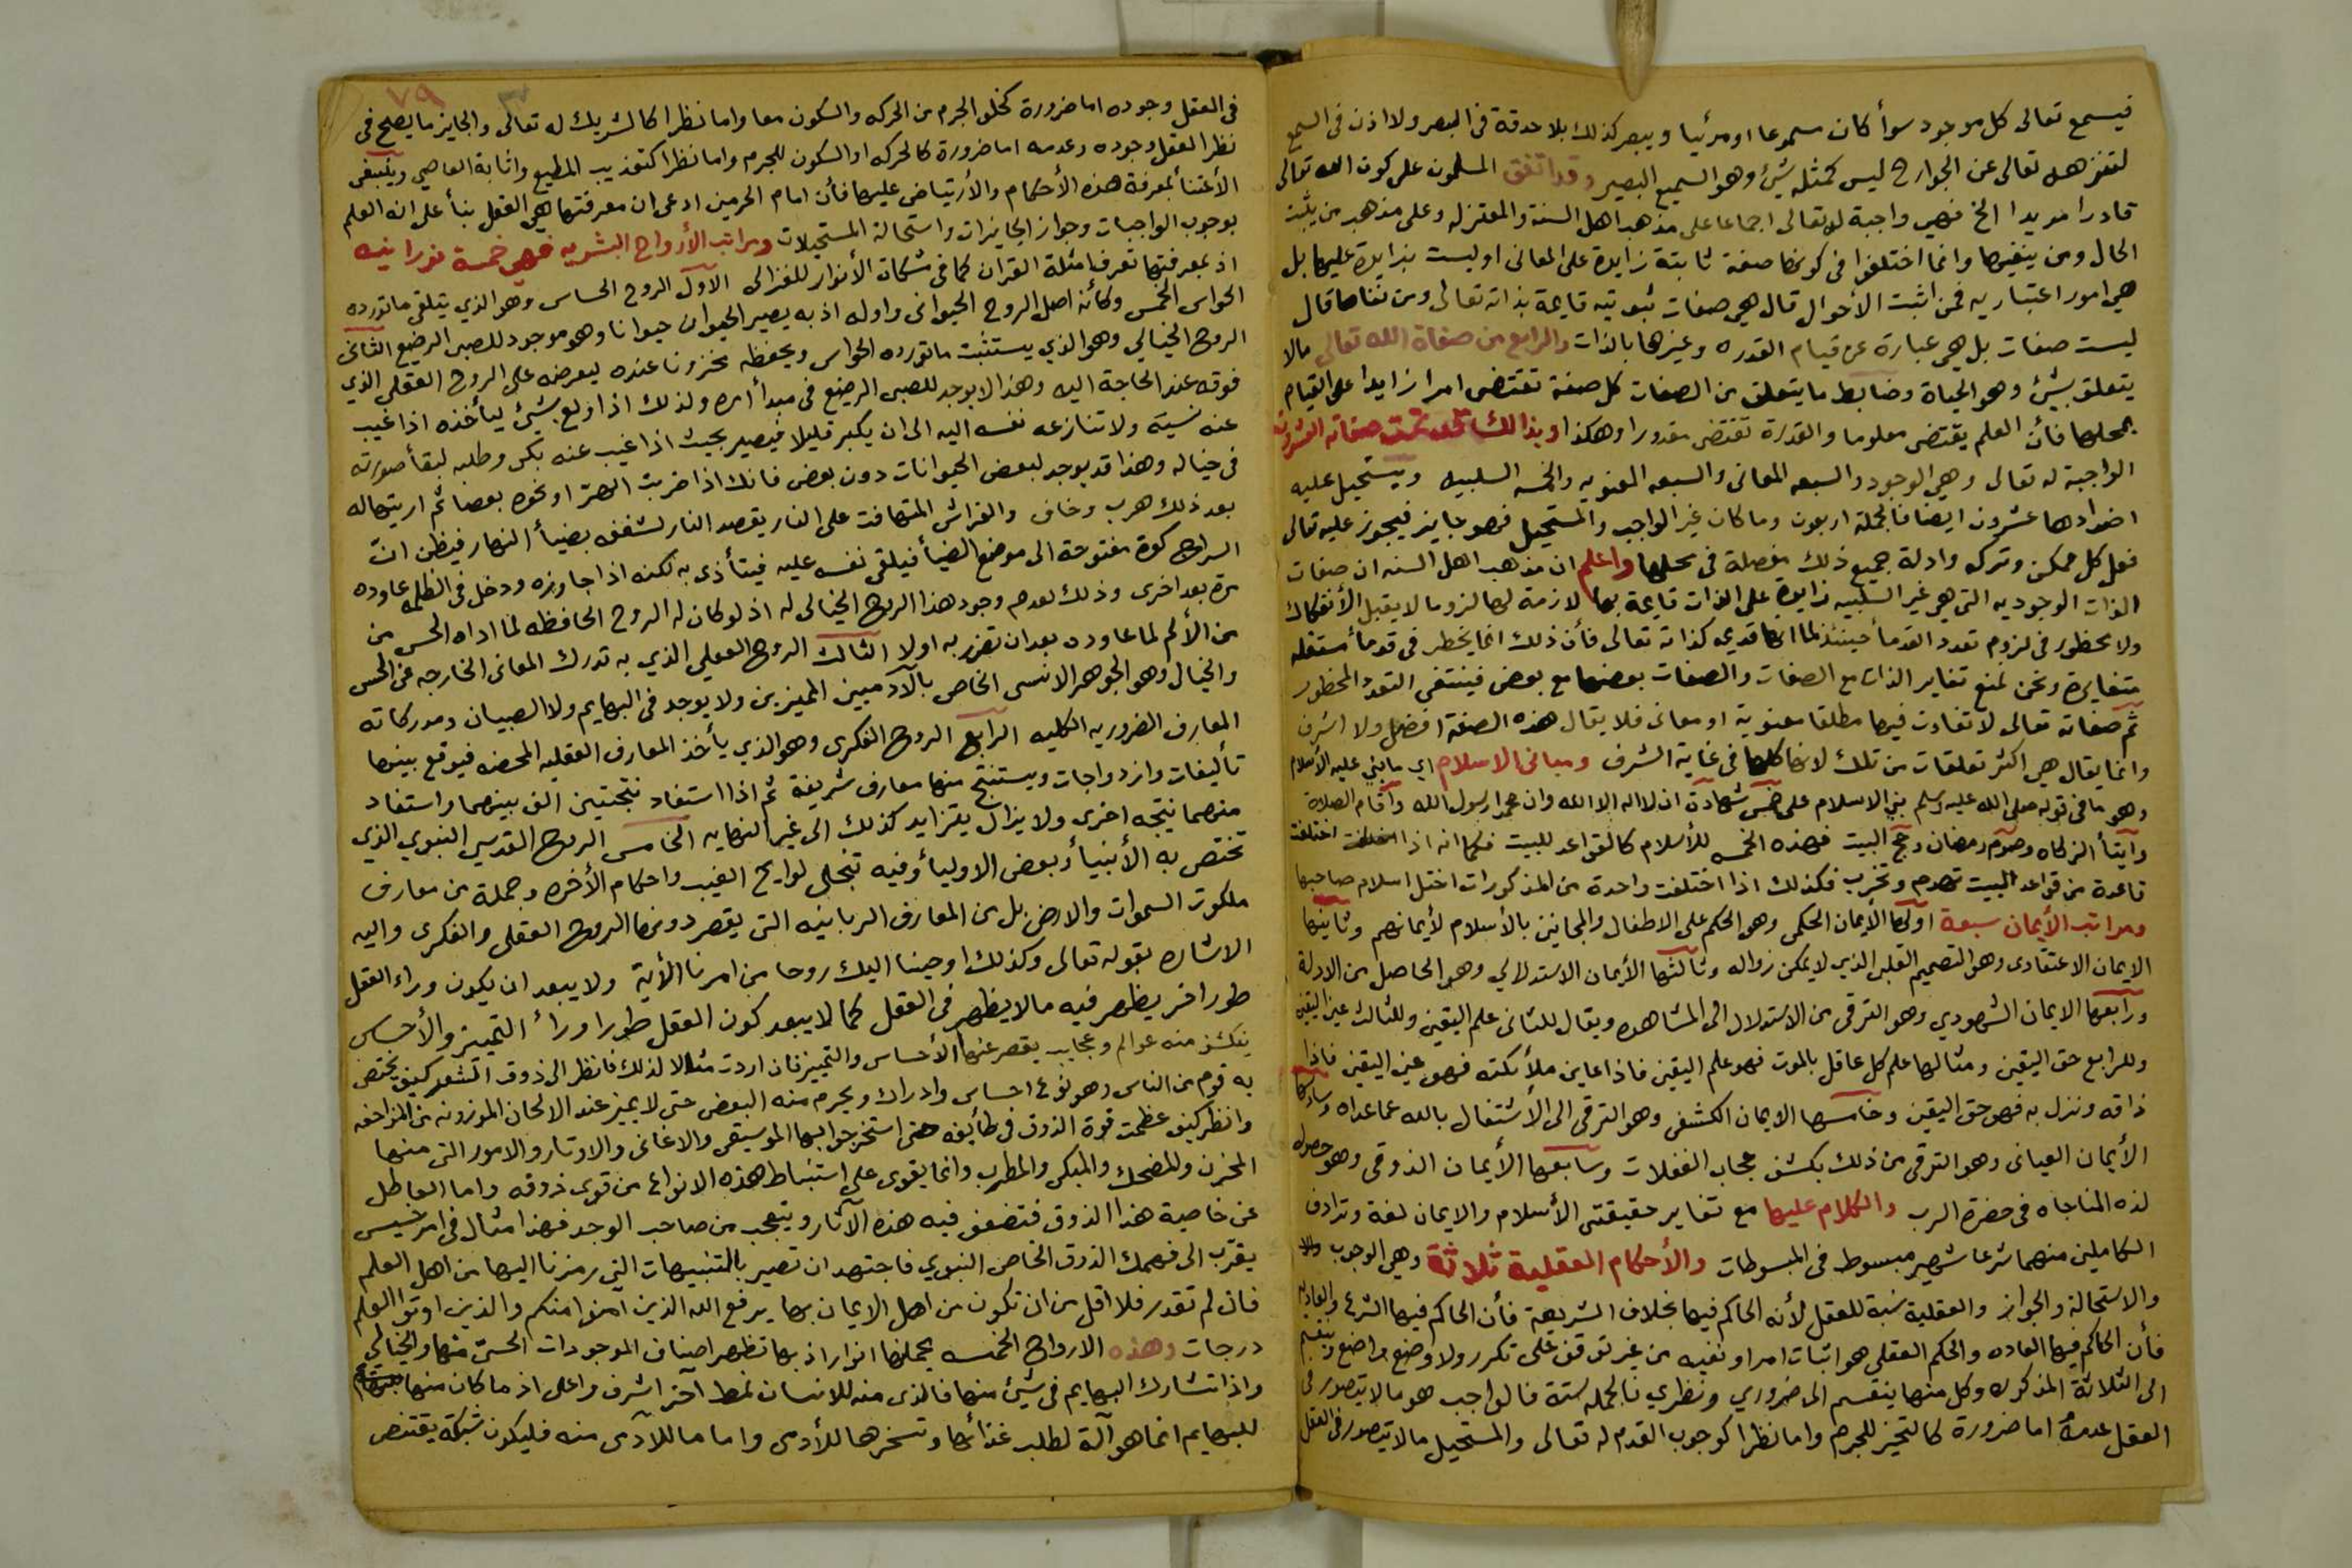 فيسمع تعالى كل موجود سوأ كان مسموعا او مرئيا ويبصر كذلك بلا حدقة فى البصر ولا اذن فى السمع
لتنزهه تعالى عن الجوارح ليس كمثله شئ وهو السميع البصير وقد اتفق المسلمون على كون الله تعالى
قادرا مريدا الخ فهى واجبة له تعالى اجماعا على مذهب اهل السنة والمعتزله وعلى مذهب من يثبت
الحال ومن ينفيها وانما اختلفوا فى كونها صفة ثابتة زايدة على المعانى او ليست بزايدة عليها بل
هى امور اعتباريه فمن اثبت الأحوال قال هى صفات ثبوتيه قايمة بذاته تعالى ومن نفاها قال
ليست صفات بل هى عبارة عن قيام القدره وغيرها بالذات والرابع من صفاة الله تعالى مالا
يتعلق بشئ وهو الحياة وضابط ما يتعلق من الصفات كل صفة تقتضى امرا زايدا على القيام
بمحلها فأن العلم يقتضى معلوما والقدرة تقتضى مقدورا وهكذا وبذالك تمت صفاته العشرون
الواجبة له تعالى وهى الوجود والسبعه المعانى والسبعه المعنويه والخمسه السلبيه ويستحيل عليه
اضدادها عشرون ايضا فالجملة اربعون وما كان غير الواجب والمستحيل فهو جايز فيجوز عليه تعالى
فعل كل ممكن وتركه وادلة جميع ذلك مفصلة فى محلها واعلم ان مذهب اهل السنه ان صفات
الذات الوجوديه التى هى غير السلبيه زايدة على الذات قايمة بها لازمة لها لزوما لا يقبل الأنفكاك
ولا محظور فى لزوم تعدد القدمأ حينئذ لما انها قديمه كذاته تعالى فأن ذلك انما يخطر فى قدمأ مستقله
متغايرة ونحن نمنع تغاير الذات مع الصفات والصفات بعضها مع بعض فينتفى التعدد المحظور
ثم صفاته تعالى لا تفاوت فيها مطلقا معنوية او معانى فلا يقال هذه الصفة افضل ولا اشرف
وانما يقال هى اكثر تعلقات من تلك لانها كلها فى غاية الشرف ومبانى الاسلام اى ما بني عليه الأسلام
وهو ما فى قوله صلى الله عليه وسلم بني الاسلام على خمس شهادة ان لا اله الا الله وان محمدا رسول الله واقام الصلاة
وايتأ الزكاه وصوم رمضان وحج البيت فهذه الخمسه للأسلام كالقواعد للبيت فكما انه اذا اختلفت
قاعدة من قواعد البيت تهدم وتخرب فكذلك اذا اختلفت واحدة من المذكورات اختل اسلام صاحبها
ومراتب الأيمان سبعة اولها الأيمان الحكمى وهو الحكم على الاطفال والمجانين بالأسلام لأيمانهم وثانيها
الايمان الاعتقادى وهو التصميم القلبى الذي لا يمكن زواله وثالثها الأيمان الاستدلالي وهو الحاصل من الادلة
ورابعها الايمان الشهودي وهو الترقى من الاستدلال الى المشاهده ويقال للثانى علم اليقين وللثالث عين اليقين
وللرابع حق اليقين ومثالها علم كل عاقل بالموت فهو علم اليقين فاذا عاين ملأئكته فهو عين اليقين فاذا
ذاقه ونزل به فهو حق اليقين وخامسها الايمان الكشفى وهو الترقى الى الأشتغال بالله عما عداه وسادسها
الأيمان العيانى وهو الترقى من ذلك بكشف حجاب الغفلات وسابعها الأيمان الذوقى وهو حصول
لذه المناجاه فى حضرة الرب والكلام عليها مع تغاير حقيقتى الأسلام والايمان لغة وترادف
الكاملين منهما شرعا شهير مبسوط فى المبسوطات والأحكام العقلية ثلاثة وهى الوجوب
والاستحالة والجواز والعقلية نسبة للعقل لأنه الحاكم فيها بخلاف الشريعة فأن الحاكم فيها الشرع والعاديه
فأن الحاكم فيها العاده والحكم العقلى هو اثبات امر او نفيه من غير توقف على تكرر ولا وضع واضع وينقسم
الى الثلاثة المذكوره وكل منها ينقسم الى ضروري ونظري فالجمله ستة فالواجب هو ما لا يتصور فى
العقل عدمه اما ضرورة كالتحيز للجرم واما نظرا كوجوب القدم له تعالى والمستحيل مالا يتصور فى العقل
٧٩
فى العقل وجوده اما ضرورة كخلو الجرم من الحركه والسكون معا واما نظرا كالشريك له تعالى والجايز ما يصلح فى
نظر العقل وجوده وعدمه اما ضرورة كالحركه او السكون للجرم واما نظرا كتعذيب المطيع واثابة العاصي وينبغى
الأعتنأ بمعرفة هذه الأحكام والأرتياض عليها فأن امام الحرمين ادعى ان معرفتها هي العقل بنأ على انه العلم
بوجوب الواجبات وجواز الجايزات واستحالة المستحيلات ومراتب الأرواح البشريه فهى خمسة نورانيه
اذ بمعرفتها تعرف امثلة القران كما فى مشكات الأنوار للغزالى الأول الروح الحساس وهو الذي يتلقى ماتورده
الحواس الخمس وكأنه اصل الروح الحيوانى واوله اذ به يصير الحيوان حيوانا وهو موجود للصبى الرضيع الثانى
الروح الخيالي وهو الذي يستثبت ماتورده الحواس ويحفظه مخزونا عنده ليعرضه على الروح العقلى الذي
فوقه عند الحاجة اليه وهذا لا يوجد للصبى الرضيع فى مبدأ امره ولذلك اذا ولع بشئ ليأخذه اذا غيب
عنه نسيه ولا تنازعه نفسه اليه الى ان يكبر قليلا فيصير بحيث اذا غيب عنه بكى وطلبه لبقأ صورته
فى خياله وهذا قد يوجد لبعض الحيوانات دون بعض فانك اذا ضربت الهر او نحوه بعصا ثم اريتها له
بعد ذلك هرب وخاف والفراش المتهافت على النار يقصد النار لشغفه بضيأ النهار فيظن ان
السراج كوة مفتوحة الى موضع الضيأ فيلقى نفسه عليه فيتأذى به لكنه اذا جاوزه ودخل فى الظلمه عاوده
مرة بعد اخرى وذلك لعدم وجود هذا الروح الخيالى له اذ لو كان له الروح الحافظه لما اداه الحس من
من الألم لما عاوده بعد ان تضرر به اولا الثالث الروح العقلي الذي به تدرك المعانى الخارجه عن الحس
والخيال وهو الجوهر الانسى الخاص بالأدميين المميزين ولا يوجد فى البهايم ولا الصبيان ومدركاته
المعارف الضروريه الكليه الرابع الروح الفكرى وهو الذي يأخذ المعارف العقليه المحضه فيوقع بينها
تأليفات وازدواجات ويستنتج منها معارف شريفة ثم اذا استفاد نتيجتين الف بينهما واستفاد
منهما نتيجه اخرى ولا يزال يتزايد كذلك الى غير النهايه الخامس الروح القدسي النبوي الذي
تختص به الأنبيأ وبعض الاوليأ وفيه تتجلى لوايح الغيب واحكام الأخره وجملة من معارف
ملكوت السموات والارض بل من المعارف الربانيه التى يقصر دونها الروح العقلى والفكرى واليه
الاشاره بقوله تعالى وكذلك اوحينا اليك روحا من امرنا الأية ولا يبعد ان يكون وراء العقل
طور اخر يظهر فيه مالا يظهر فى العقل كما لا يبعد كون العقل طورا ورأ التمييز والأحساس
ينكشف منه عوالم وعجايب يقصر عنها الأحساس والتمييز فان اردت مثالا لذلك فانظر الى ذوق الشعر كيف يختص
به قوم من الناس وهو نوع احساس وادراك ويحرم منه البعض حتى لا يميز عنده الالحان الموزونه من المزاحفه
وانظر كيف عظمت قوة الذوق فى طأيفه حتى استخرجوا بها الموسيقى والاغانى والاوتار والامور التى منها
المحزن والمضحك والمبكى والمطرب وانما يقوى على استنباط هذه الانواع من قوى ذوقه واما العاطل
عن خاصية هذا الذوق فتضعف فيه هذه الآثار ويتعجب من صاحب الوجد فهذا مثال فى امر خسيس
يقرب الى فهمك الذوق الخاص النبوي فاجتهد ان تصير بالتنبيهات التى رمزنا اليها من اهل العلم
فان لم تقدر فلا اقل من ان تكون من اهل الايمان بها يرفع الله الذين آمنوا منكم والذين اوتوا العلم
درجات وهذه الارواح الخمسه بجملتها انوار اذ بها تظهر اصناف الموجودات الحسى منها والخيالي
واذا تشارك البهايم فى شئ منها فالذى منه للانسان نمط آخر اشرف واعلى اذ ما كان منها
للبهايم انما هو آلة لطلب غذأئها وتسخرها للأدمى واما ما للآدمى منه فليكون شبكة يقتنص